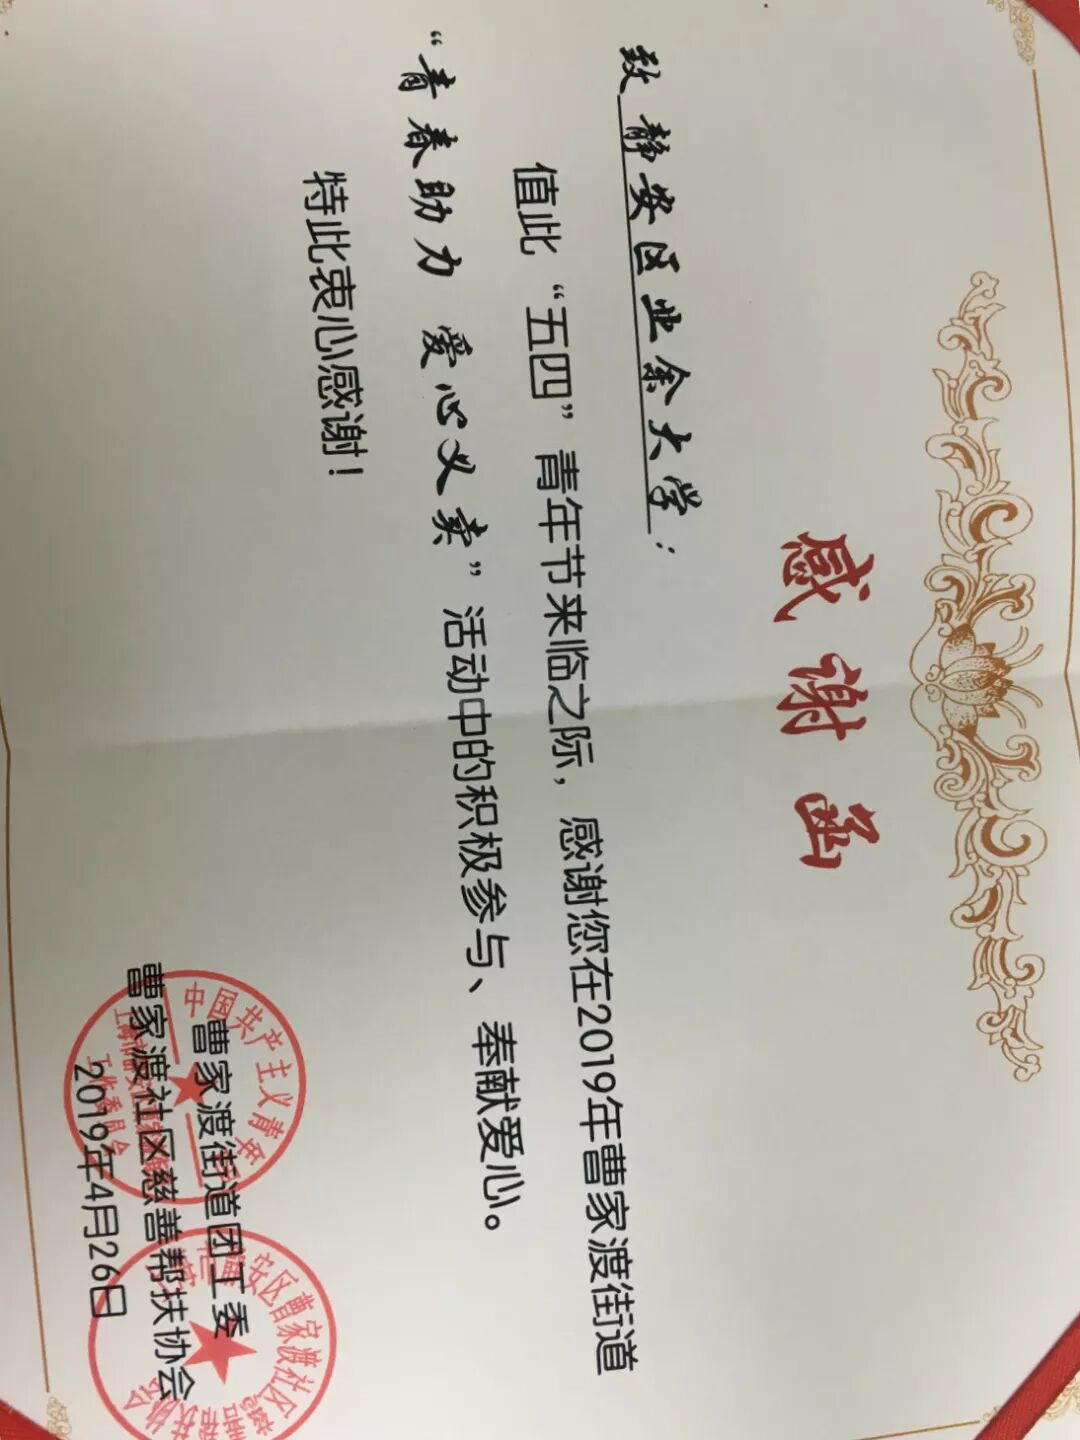 感谢函
致静安区业余大学：
值此“五四”青年节来临之际，感谢您在2019年曹家渡街道
“青春助力 爱心义卖”活动中的积极参与、奉献爱心。
特此衷心感谢！
曹家渡街道团工委
曹家渡社区慈善帮扶协会
2019年4月26日
中国共产主义青年
工作委员会
安区曹家渡社区